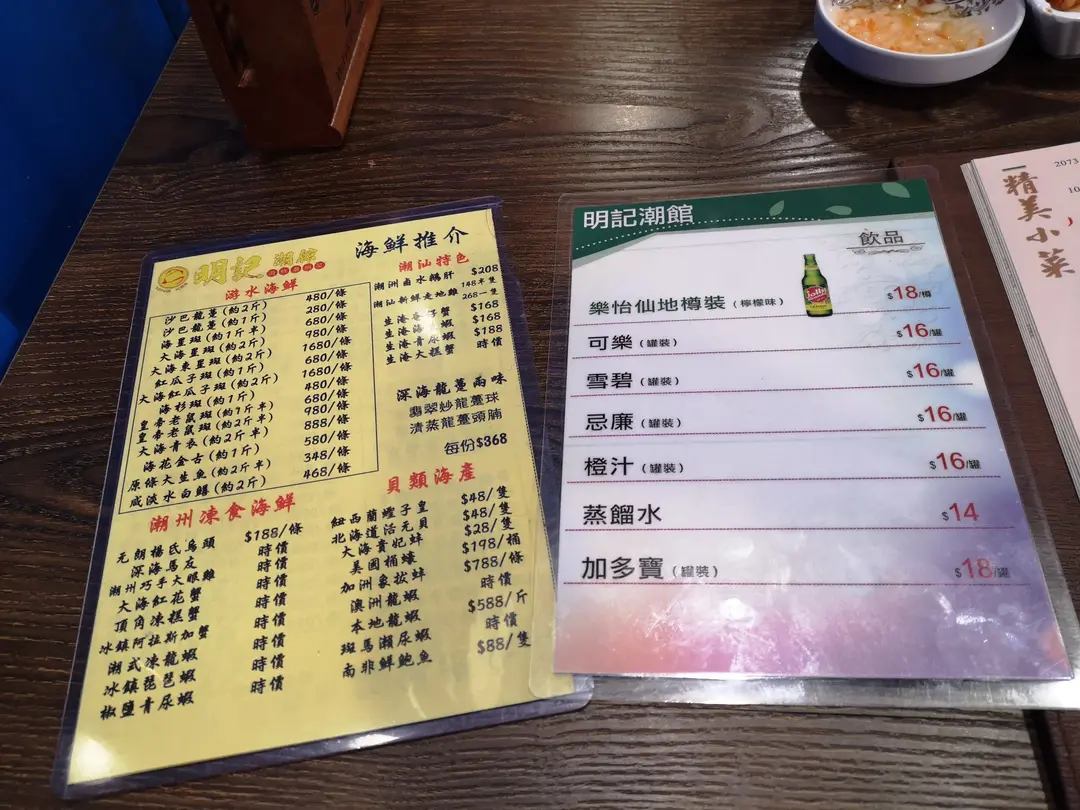 明記 潮館
海鮮推介
游水海鮮
沙巴龍躉(約2斤) 480/條
海星斑(約1斤) 280/條
大海星斑(約1斤半) 680/條
大海東星斑(約2斤) 980/條
紅瓜子斑(約1斤) 1680/條
大海紅瓜子斑(約2斤) 680/條
海杉斑(約1斤) 1680/條
皇帝老鼠斑(約1斤半) 480/條
皇帝老鼠斑(約2斤半) 680/條
大海青衣(約2斤) 980/條
海花金古(約1斤) 888/條
原條大生魚(約2斤半) 580/條
咸淡水白鱔(約2斤) 348/條
468/條
潮汕特色
潮洲鹵水鵝肝 $208
潮汕新鮮走地雞 148半隻
268一隻
$168
生港海 蝦 $168
生港青尿蝦 $188
生港大糕蟹 時價
深海龍躉兩味
翡翠炒龍躉球
清蒸龍躉頭腩
每份$368
潮州凍食海鮮
元朗楊氏烏頭 $188/條
深海馬友 時價
潮州巧手大眼雞 時價
大海紅花蟹 時價
頂角凍糕蟹 時價
冰鎮阿拉斯加蟹 時價
潮式凍龍蝦 時價
冰鎮琵琶蝦 時價
椒鹽青尿蝦 時價
貝類海產
紐西蘭蟶子皇 $48/隻
北海道活元貝 $48/隻
大海貴妃蚌 $28/隻
美國桶蠔 $198/桶
加洲象拔蚌 $788/條
澳洲龍蝦 時價
本地龍蝦 $588/斤
斑馬瀨尿蝦 時價
南非鮮鮑魚 $88/隻
明記潮館
飲品
樂怡仙地樽裝(檸檬味) $18/樽
可樂(罐裝) $16/罐
雪碧(罐裝) $16/罐
忌廉(罐裝) $16/罐
橙汁(罐裝) $16/罐
蒸餾水 $14
加多寶(罐裝) $18/罐
精美小菜
2073
10